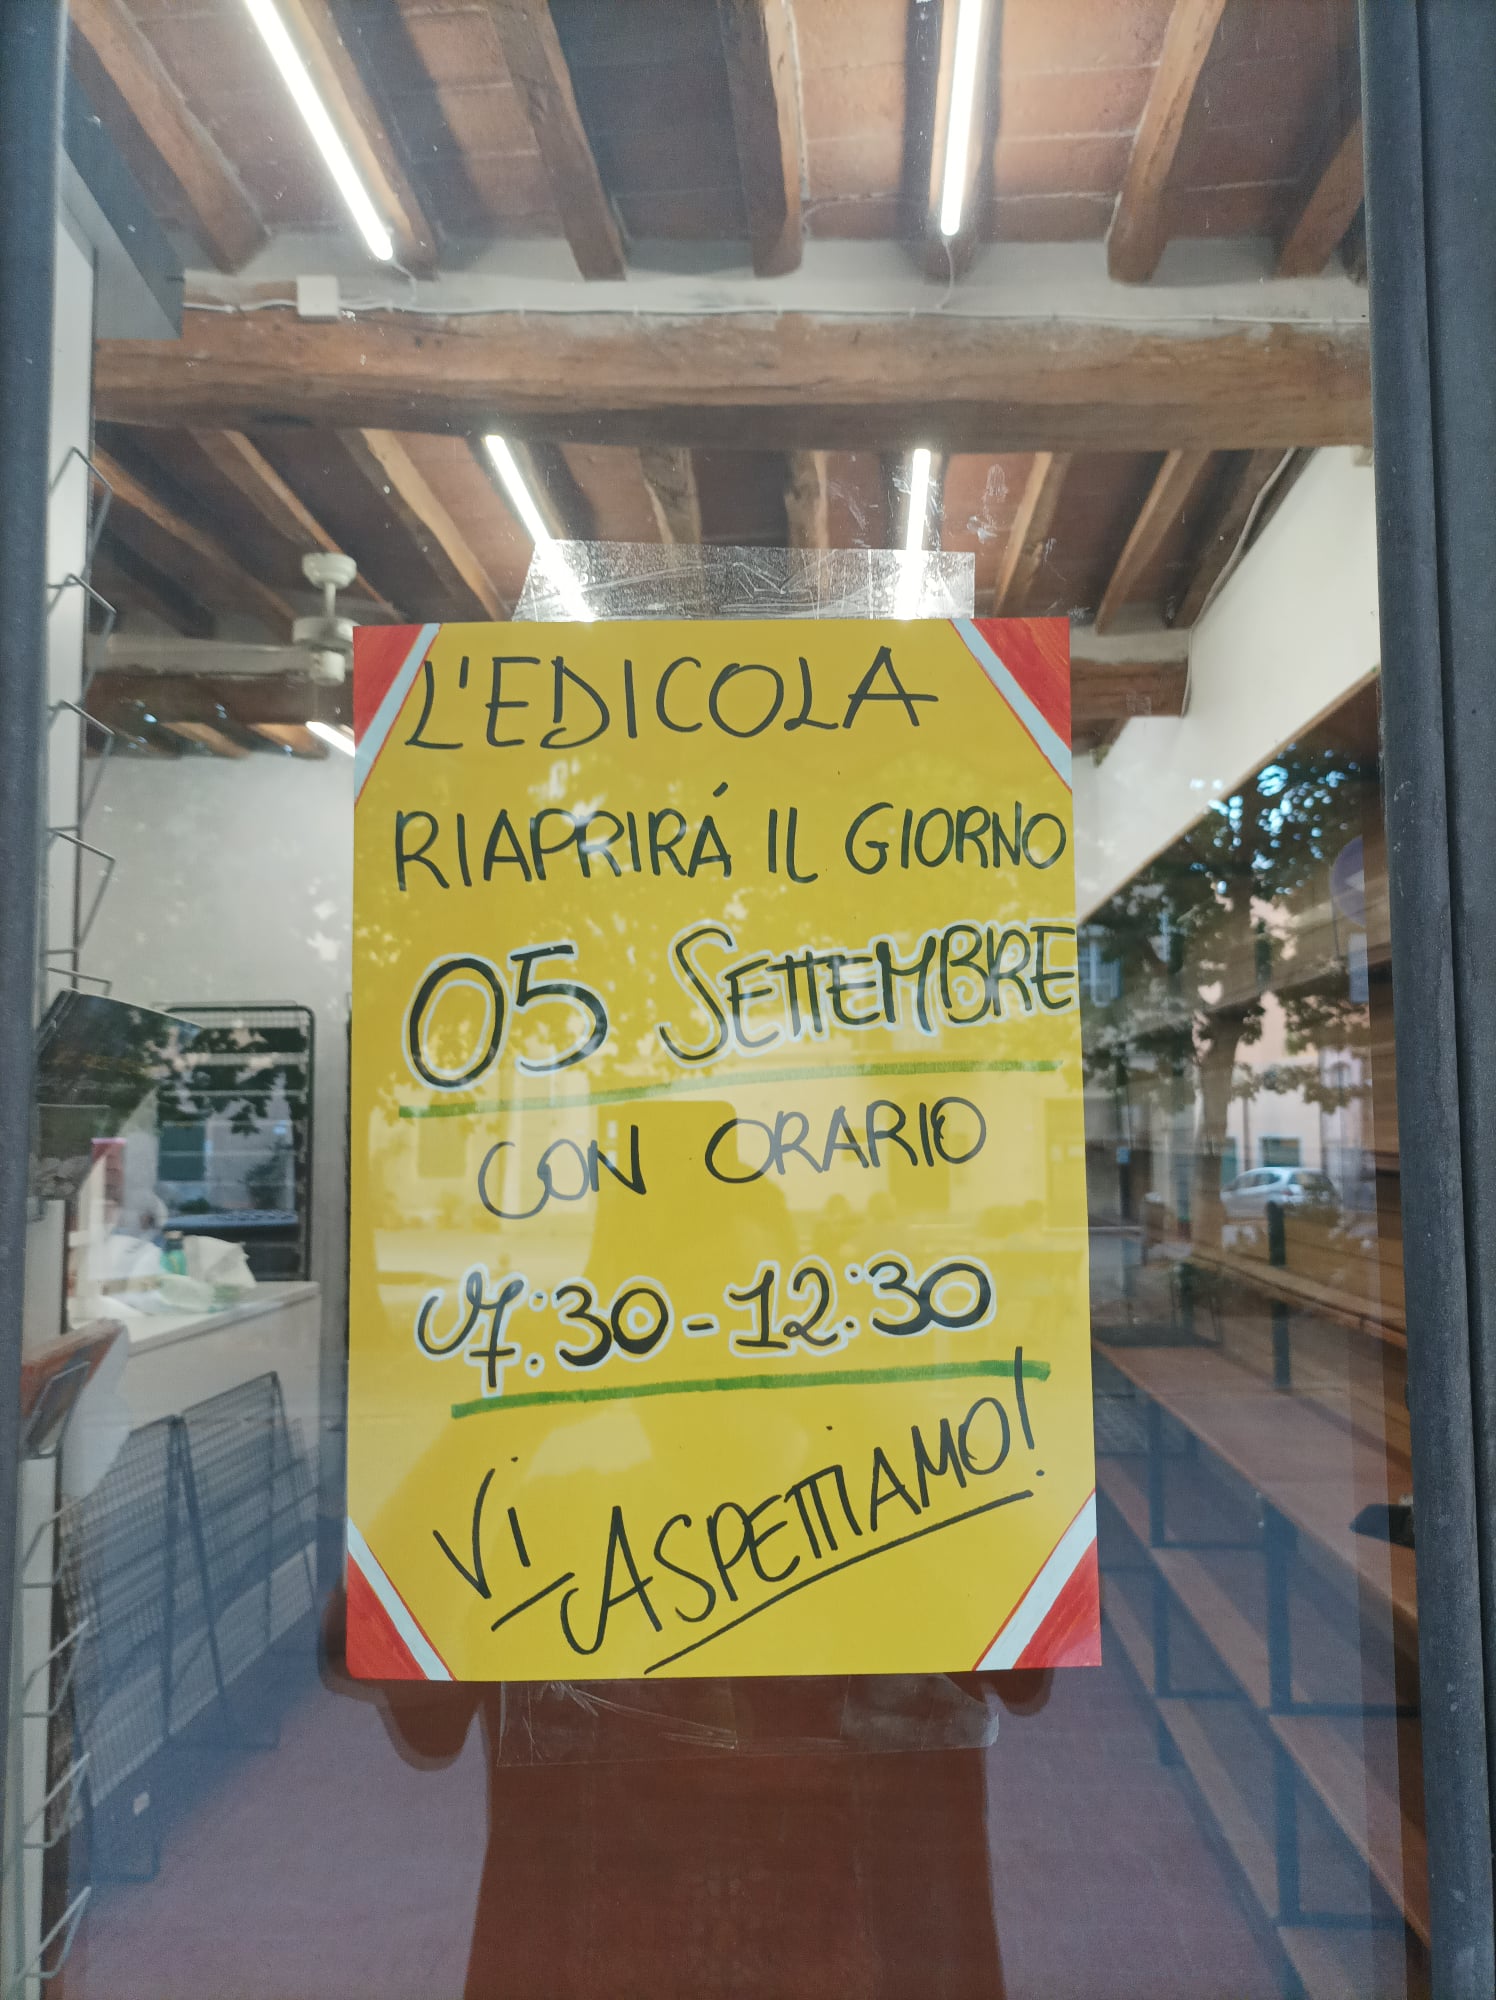 L'EDICOLA
RIAPRIRÁ IL GIORNO
05 SETTEMBRE
CON ORARIO
7:30-12:30
Vi
ASPETTIAMO!